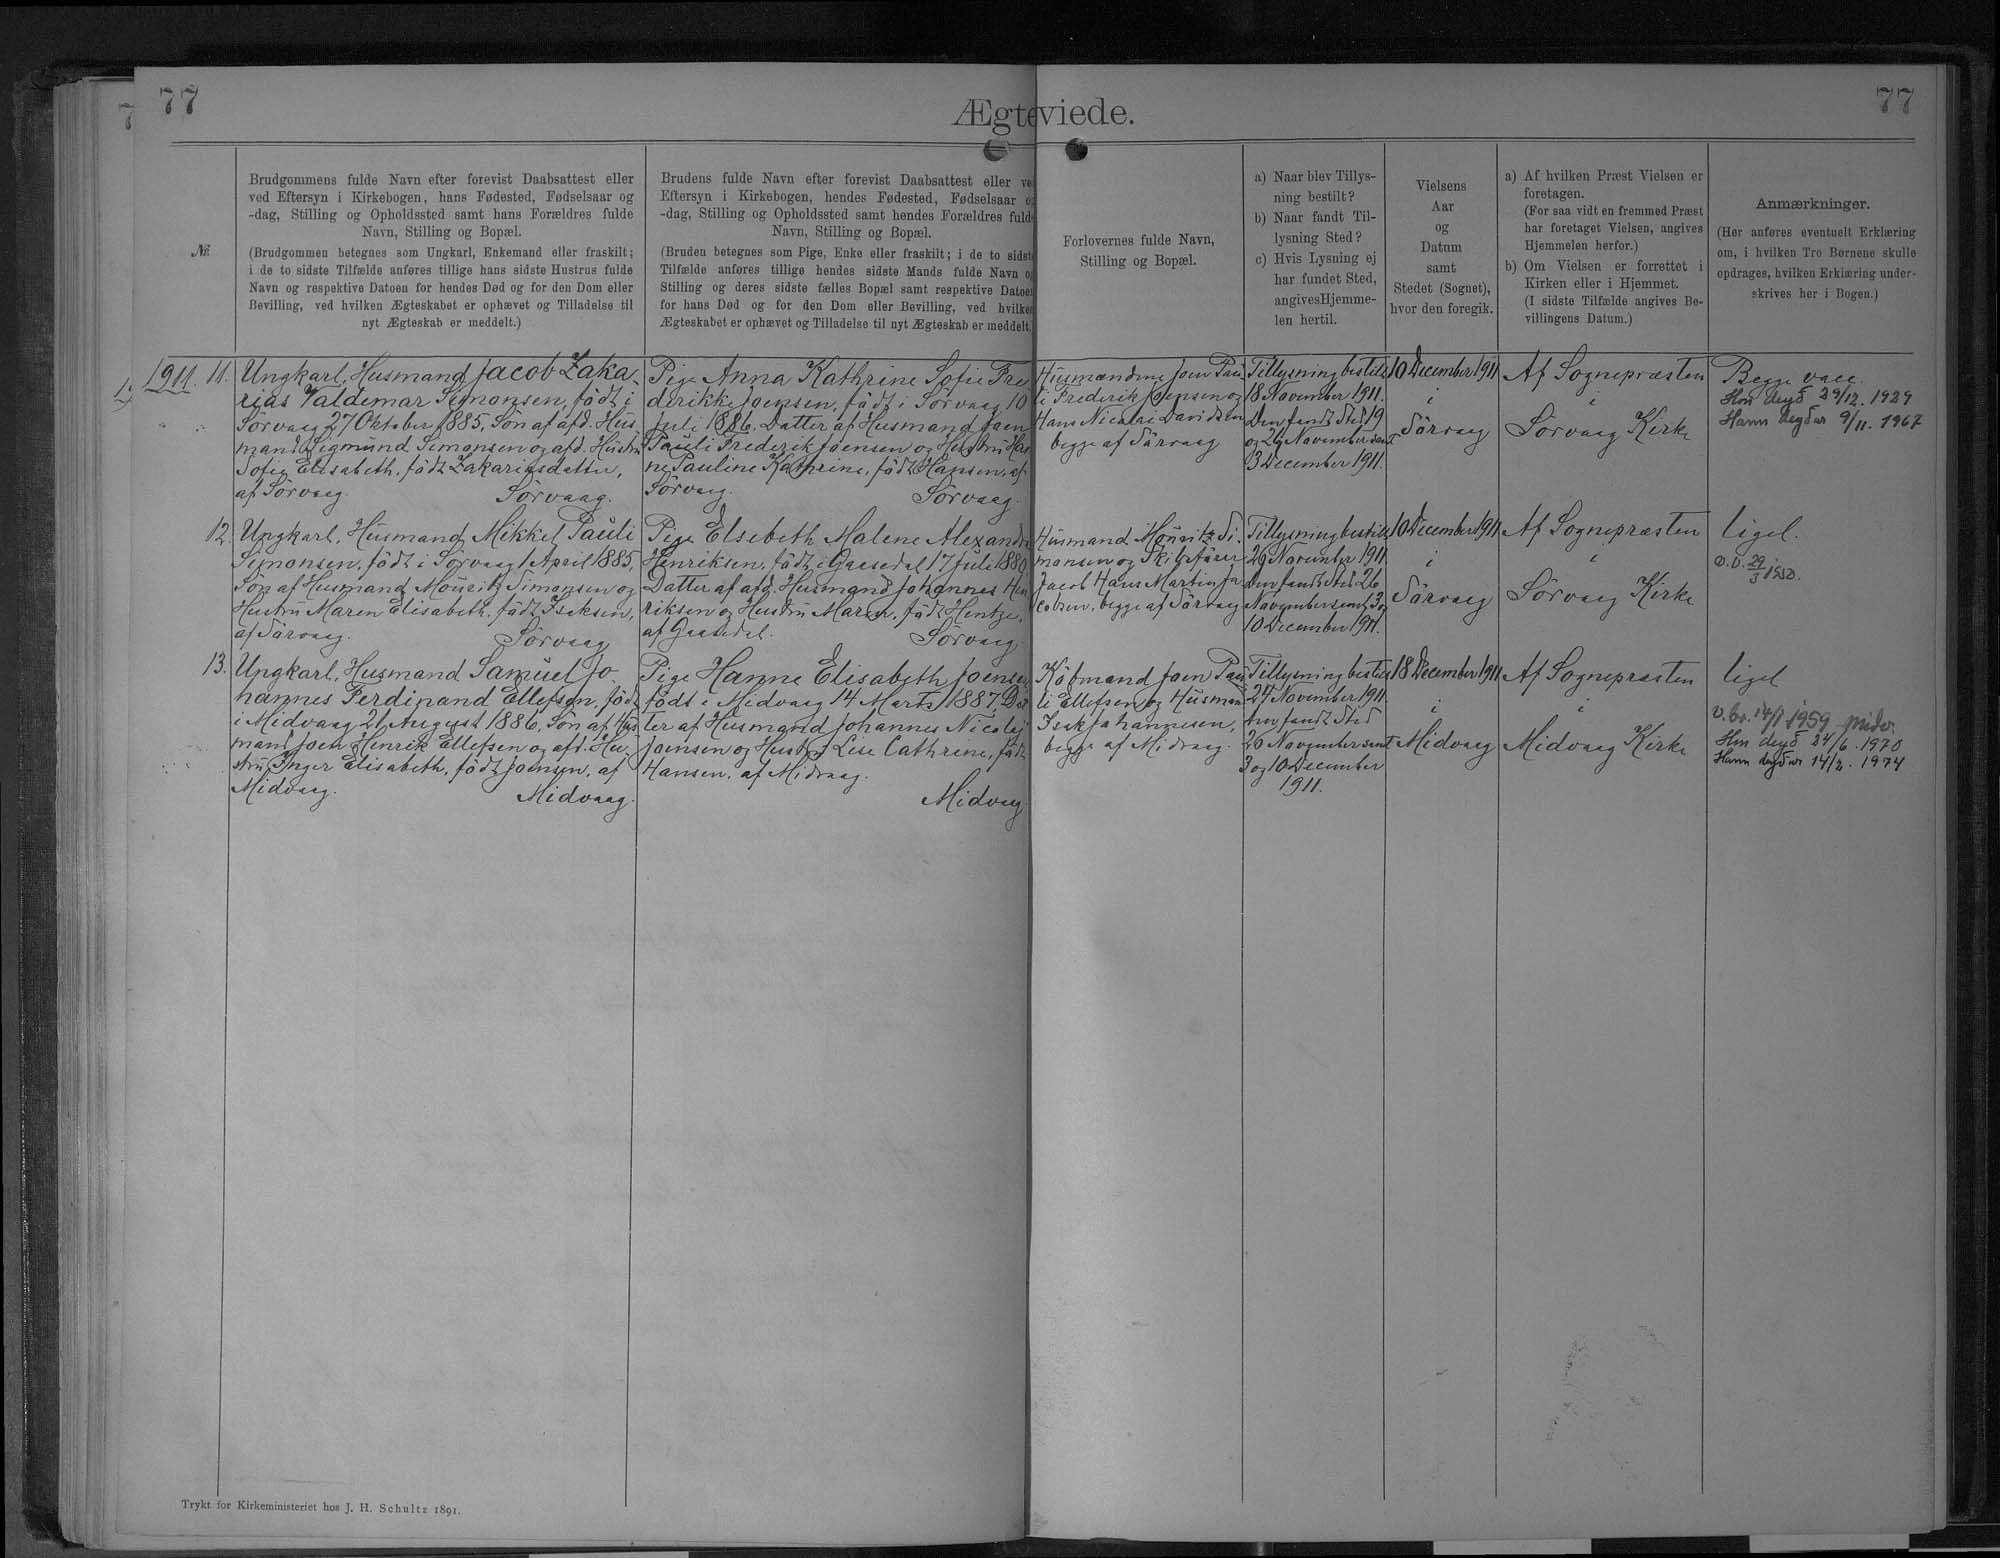 77
77
Ægteviede.
№
Brudgommens fulde Navn efter forevist Daabsattest eller
ved Eftersyn i Kirkebogen, hans Fødested, Fødselsaar og
-dag, Stilling og Opholdssted samt hans Forældres fulde
Navn, Stilling og Bopæl.
(Brudgommen betegnes som Ungkarl, Enkemand eller fraskilt;
i de to sidste Tilfælde anføres tillige hans sidste Hustrus fulde
Navn og respektive Datoen for hendes Død og for den Dom eller
Bevilling, ved hvilken Ægteskabet er ophævet og Tilladelse til
nyt Ægteskab er meddelt.)
Brudens fulde Navn efter forevist Daabsattest eller ve
Eftersyn i Kirkebogen, hendes Fødested, Fødselsaar o
-dag, Stilling og Opholdssted samt hendes Forældres fuld
Navn, Stilling og Bopæl.
(Bruden betegnes som Pige, Enke eller fraskilt; i de to sidst
Tilfælde anføres tillige hendes sidste Mands fulde Navn o
Stilling og deres sidste fælles Bopæl samt respektive Datoe
for hans Død og for den Dom eller Bevilling, ved hvilke
Ægteskabet er ophævet og Tilladelse til nyt Ægteskab er meddelt.
Forlovernes fulde Navn,
Stilling og Bopæl.
a) Naar blev Tillys-
ning bestilt?
b) Naar fandt Til-
lysning Sted?
c) Hvis Lysning ej
har fundet Sted,
angives Hjemme-
len hertil.
Vielsens
Aar
og
Datum
samt
Stedet (Sognet),
hvor den foregik.
a) Af hvilken Præst Vielsen er
foretagen.
(For saa vidt en fremmed Præst
har foretaget Vielsen, angives
Hjemmelen herfor.)
b) Om Vielsen er forrettet i
Kirken eller i Hjemmet.
(I sidste Tilfælde angives Be-
villingens Datum.)
Anmærkninger.
(Her anføres eventuelt Erklæring
om, i hvilken Tro Børnene skulle
opdrages, hvilken Erklæring under-
skrives her i Bogen.)
1911. 11.
Ungkarl, Husmand Jacob Zaka-
rias Valdemar Simonsen, født i
Sørvaag 27 Oktober 1885, Søn af afd. Hus
mand Sigmund Simonsen og afd. Hustru
Sofie Elisabeth, født Zakariasdatter,
af Sørvaag. Sørvaag.
Pige Anna Kathrine Sofie Fre
derikke Joensen, født i Sørvaag 10
Juli 1886, Datter af Husmand Joen
Pauli Frederik Joensen og Hustru Han
ne Pauline Kathrine, født Hansen, af
Sørvaag. Sørvaag.
Husmændene Joen Pau
li Frederik Joensen og
Hans Nicolai Davidsen
begge af Sørvaag
Tillysning bestilt
18 November 1911.
Den fandt Sted 19
og 26 November samt
3 December 1911.
10 December 1911
i
Sørvaag
Af Sognepræsten
i
Sørvaag Kirke
Begge vacc.
Hon deyð 29/12. 1929
Hann deyður 9/11. 1967
12.
Ungkarl, Husmand Mikkel Pauli
Simonsen, født i Sørvaag 1 April 1885,
Søn af Husmand Mouritz Simonsen og
Hustru Maren Elisabeth, født Isaksen,
af Sørvaag. Sørvaag
Pige Elsebeth Malene Alexandra
Henriksen, født i Gaasedal 17 Juli 1880
Datter af afd. Husmand Johannes Hen
riksen og Hustru Maren, født Hentze,
af Gaasedal. Sørvaag
Husmand Mouritz Si-
monsen og Skibsfører
Jacob Hans Martin Ja
cobsen, begge af Sørvaag
Tillysning bestilt
26 November 1911.
Den fandt Sted 26
November samt 3 og
10 December 1911.
10 December 1911
i
Sørvaag
Af Sognepræsten
i
Sørvaag Kirke
ligel.
13.
Ungkarl, Husmand Samuel Jo-
hannes Ferdinand Ellefsen, født
i Midvaag 21 August 1886, Søn af Hus
mand Joen Henrik Ellefsen og afd. Hu-
stru Inger Elisabeth, født Joensen, af
Midvaag. Midvaag.
Pige Hanne Elisabeth Joensen
født i Midvaag 14 Marts 1887, Dat
ter af Husmand Johannes Nicolaj
Joensen og Hustru Lise Cathrine, født
Hansen, af Midvaag.
Midvaag
Købmand Joen Pau
li Ellefsen og Husmand
Isak Johannesen,
begge af Midvaag.
Tillysning bestilt
24 November 1911.
Den fandt Sted
26 November samt
3 og 10 December
1911.
18 December 1911
i
Midvaag
Af Sognepræsten
i
Midvaag Kirke
ligel
1959
Hon deyð 24/6. 1970
Hann deyður 14/2. 1974
Trykt for Kirkeministeriet hos J. H. Schultz 1891.